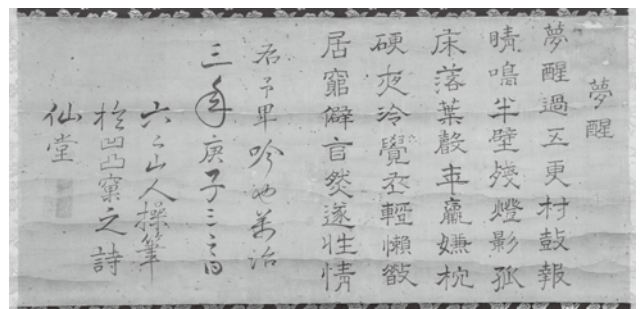 夢醒
夢醒過五更村鼓報
晴鳴半壁殘燈影孤
床落葉聲羸嫌枕
硬夜冷覺輕懶散
居窮僻自然遂性情
右予卑吟也萬治
三年庚子三
六々山人操筆
於凹凸窠之詩
仙堂